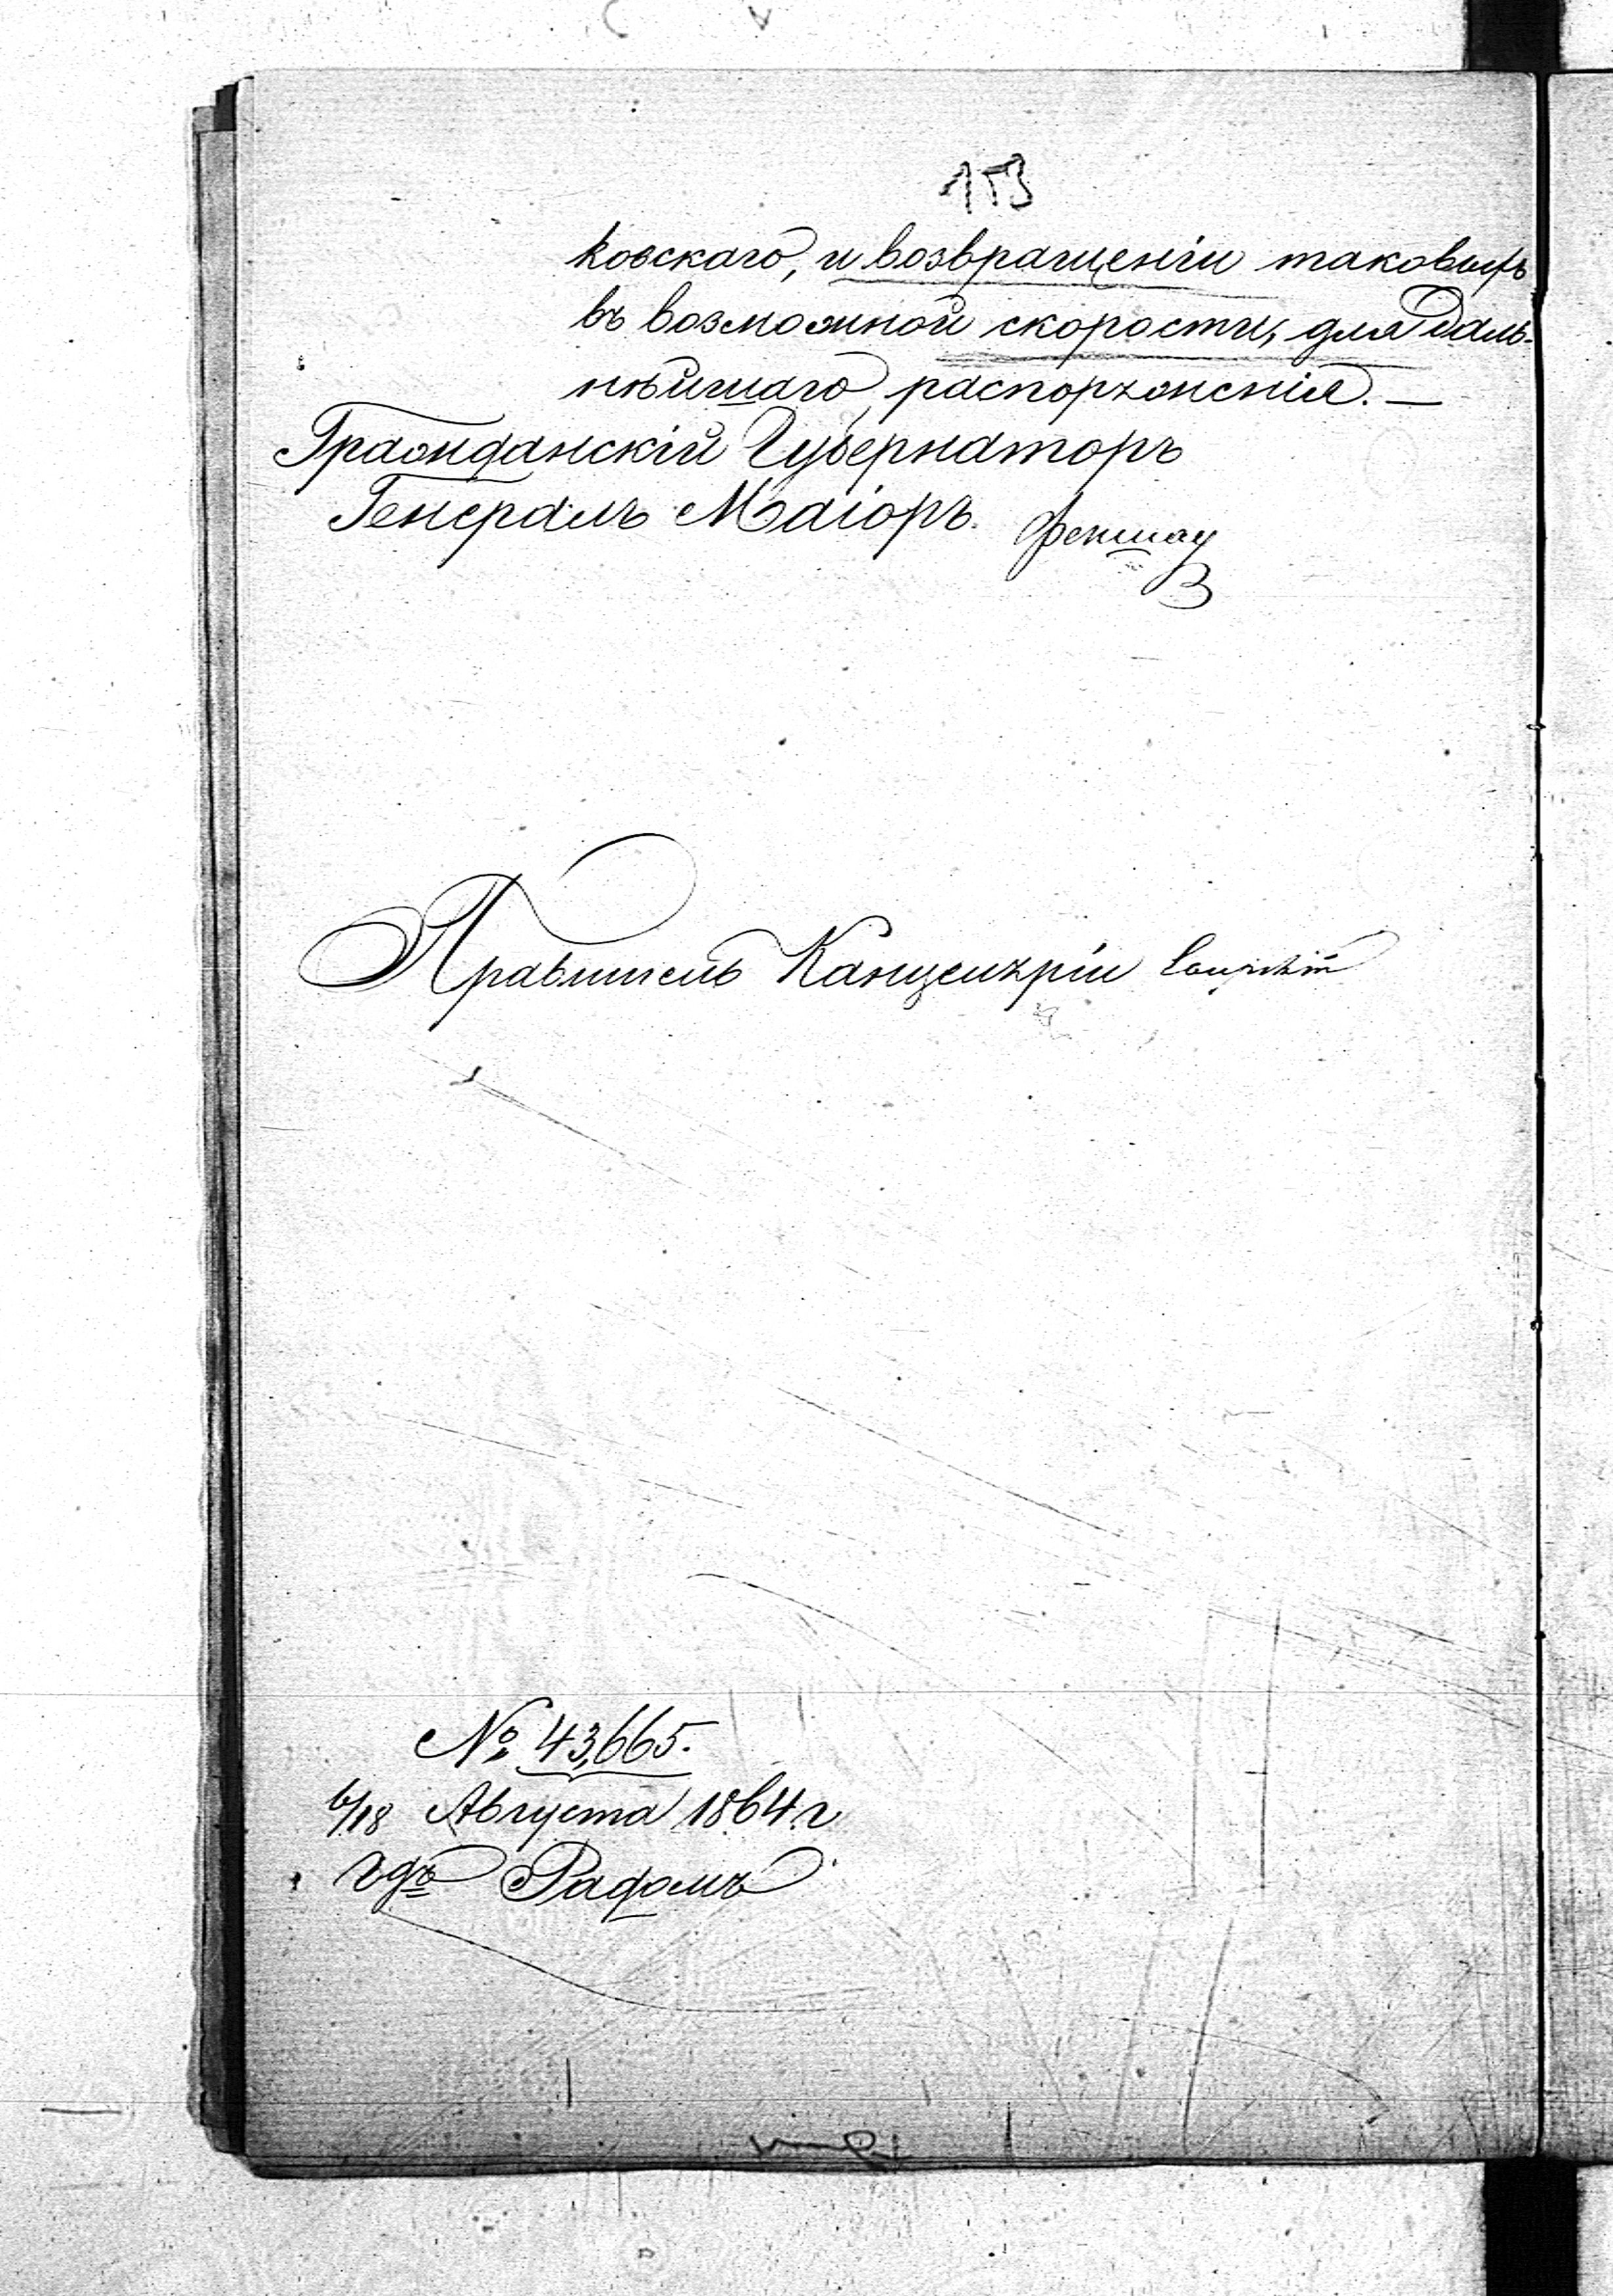 153
ковскаго, и возвращенiи таковыхъ
въ возможной скорости, для даль-
нѣйшаго распоряженiя. —
Гражданскiй Губернаторъ
Генералъ Маiоръ.
Правитель Канцелярiи
№ 43,665.
6/18 Августа 1864 г
гдъ Радомъ